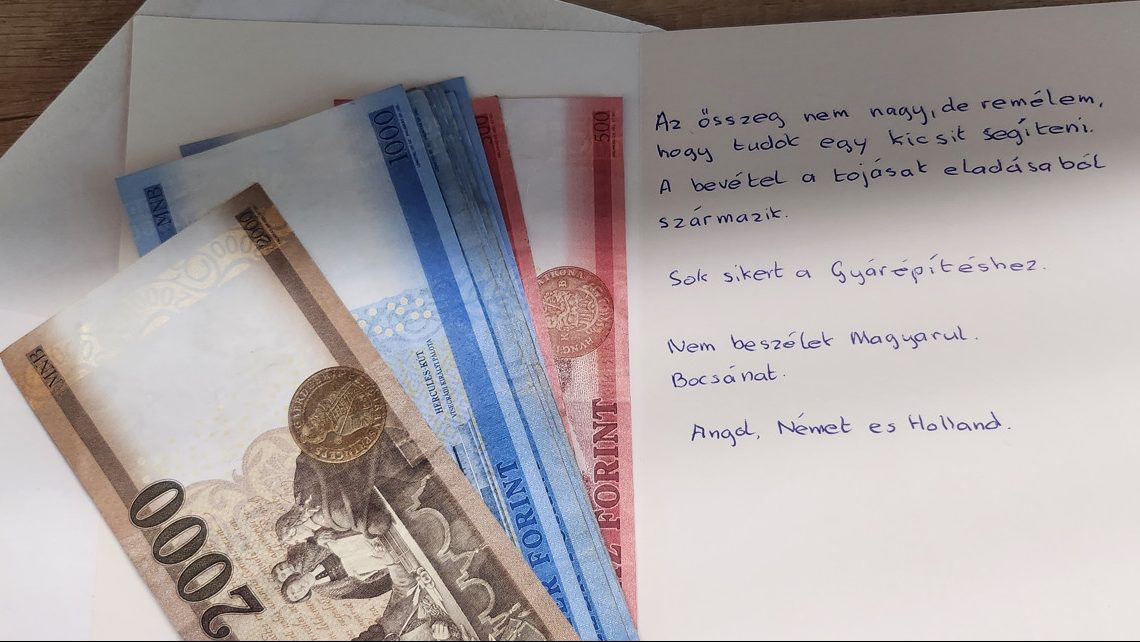 Az összeg nem nagy, de remélem,
hogy tudok egy kicsit segíteni.
A bevétel a tojásak eladásaból
származik.
Sok sikert a Gyárépítéshez.
Nem beszélek Magyarul.
Bocsánat.
Angol, Német es Holland.
MNB
2000
2000
MNB
1000
HERCULES-KÚT
VISEGRÁDI KIRÁLYI PALOTA
FORINT
500
FORINT